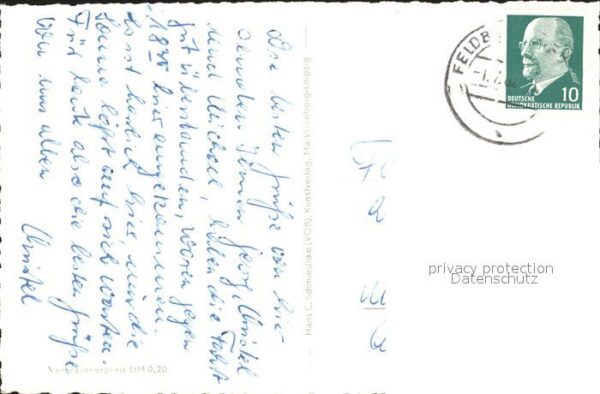 Die besten Grüße von hier
senden Ihnen Georg, Christel
und Michael, haben die Fahrt
gut überstanden, waren gegen
18 00 hier angekommen.
Es ist herrlich hier, nur die
Sonne läßt auf sich warten.
Für heute also die besten Grüße
von uns allen
Christel
Verbraucherpreis DM 0,20
Hans C. Schmiedicke (VOB), Kunstverlag, Markkleeberg-Leipzig
FELDB
10
DEUTSCHE
DEMOKRATISCHE REPUBLIK
privacy protection
Datenschutz